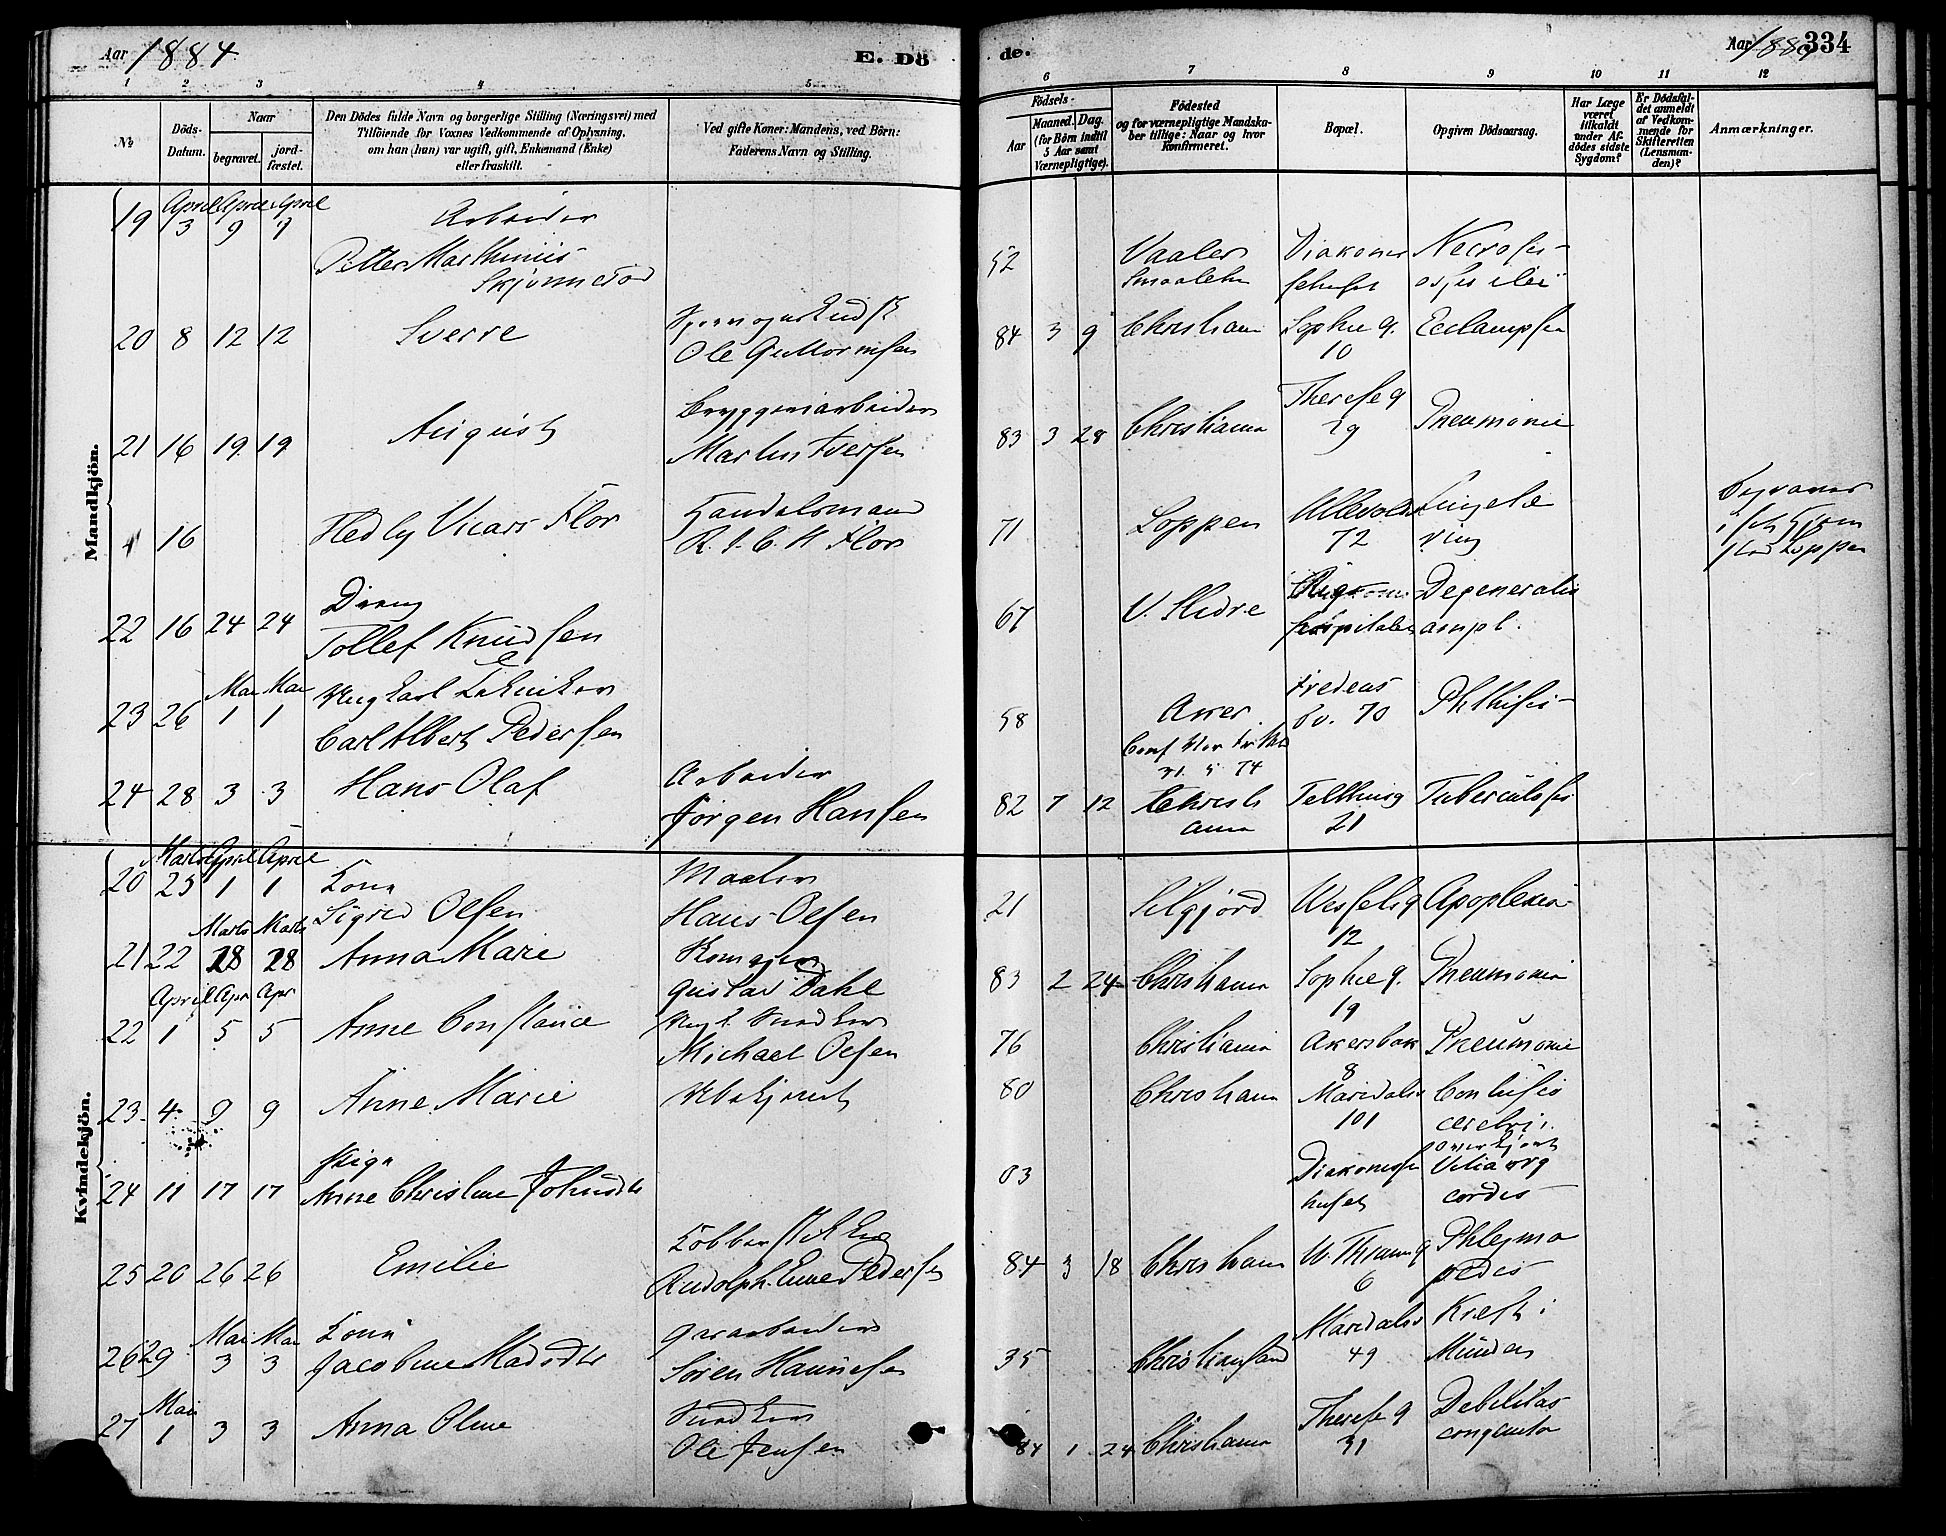 Aar 1884. E. Dö
de. Aar 1884 334
1 2 3 4 5 6 7 8 9 10 11 12
No
Döds-Datum.
Naar
begravet.
jord-fæstet.
Den Dödes fulde Navn og borgerlige Stilling (Næringsvei) med
Tilföiende for Voxnes Vedkommende af Oplysning,
om han (hun) var ugift, gift, Enkemand (Enke)
eller fraskilt.
Ved gifte Koner: Mandens, ved Börn:
Faderens Navn og Stilling.
Födsels-
Aar
Maaned. Dag.
(for Börn indtil
5 Aar samt
Værnepligtige).
Födested
og for værnepligtige Mandska-
ber tillige: Naar og hvor
Konfirmeret.
Bopæl.
Opgiven Dödsaarsag.
Har Læge
været
tilkaldt
under Af-
dödes sidste
Sygdom?
Er Dödsfal-
det anmeldt
af Vedkom-
mende for
Skifteretten
(Lensman-
den)?
Anmærkninger.
Mandkjön.
April April April Arbeider
19 3 9 9 Petter Marthinius Skjønnerød 52 Vaaler Smaalehn Diakonissehuset Necrosis
20 8 12 12 Sverre Ole Guttormsen 84 3 9 Christiania Sophieg. 10 Eclampsia
21 16 19 19 August Bryggeriarbeider Martin Iversen 83 3 28 Christiania Thereseg 29 Pneumonie
16 Hedley Vicars Flor Handelsmand R. I. C. H. Flor 71 Loppen Ullevoldsv 72
Loppen
22 16 24 24 Dreng Tollef Knudsen 67 V. Slidre hospitalet Degeneratio
Mai Mai
23 26 1 1 Ung karl Tekniker Carl Albert Pedersen 58 Aker 70 Phthisis
74
24 28 3 3 Hans Olaf Arbeider Jörgen Hansen 82 7 12 Christiania Telthusg 21 Tuberculosis
Kvindekjön.
Marts April April
20 25 1 1 Kone Sigrid Olsen Maler Hans Olsen 21 Silgjord Wesselsg 12 Apoplexia
Marts Marts
21 22 28 28 Anna Marie Gustav Dahl 83 2 24 Christiania Sophieg. 19 Pneumonia
April Apr Apr
22 1 5 5 Anne Constance Snedker Michael Olsen 76 Christiania Akersbak 8 Pneumonie
23 4 9 9 Anne Marie Ubekjendt 80 Christiania Maridalsv 101 Contusio cerebri, overkjørt
24 11 17 17 Pige Anne Christine Johnsdtr 03 Diakonissehuset Vitia org cordis
25 20 26 26 Emilie Rudolph Emil Pedersen 84 3 18 Christiania 6 Phlegmo pedis
Mai Mai
26 29 3 3 Kone Jacobine Madsdtr Søren Hansen 35 Christiansand Maridalsv 49 Kræft i Munden
Mai
27 1 3 3 Anna Oline Snedker Ole Jensen 84 1 24 Christiania Thereseg 31 Debilitas congenita